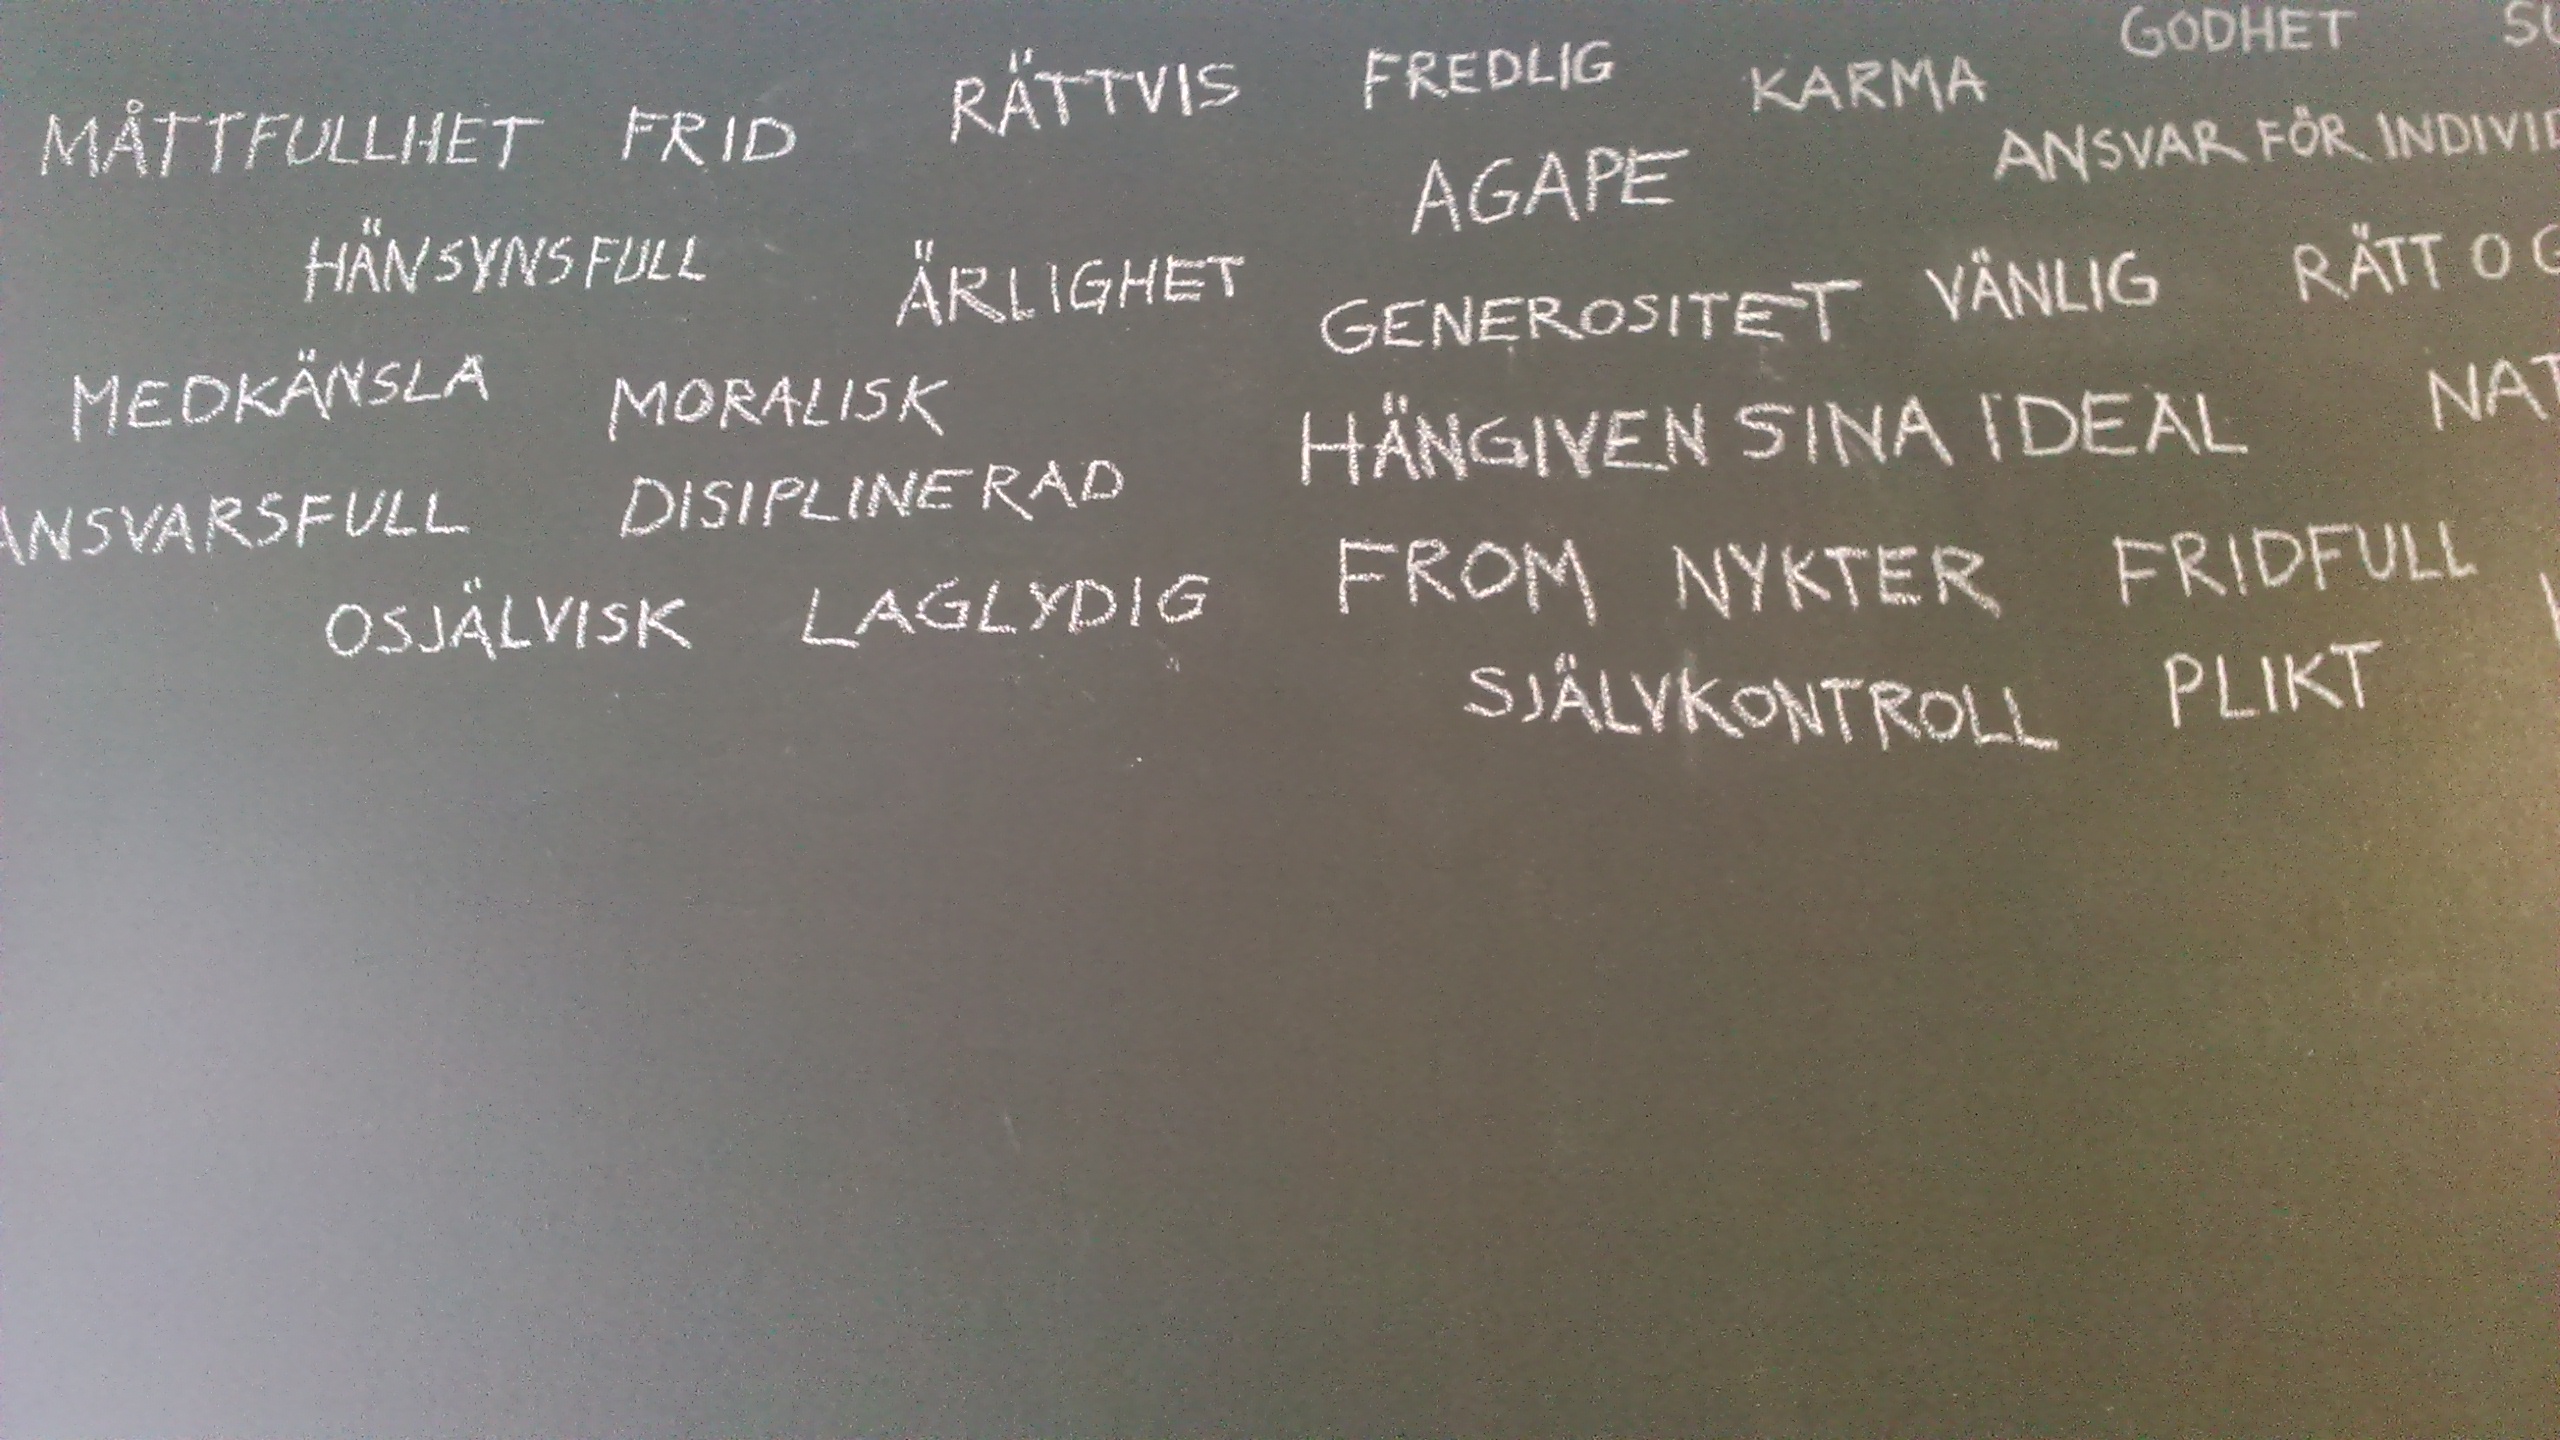 GODHET
MÅTTFULLHET FRID RÄTTVIS FREDLIG KARMA
AGAPE ANSVAR FÖR
HÄNSYNSFULL ÄRLIGHET
GENEROSITET VÄNLIG RÄTT O
MEDKÄNSLA MORALISK
HÄNGIVEN SINA IDEAL
ANSVARSFULL DISIPLINERAD
FROM NYKTER FRIDFULL
OSJÄLVISK LAGLYDIG
SJÄLVKONTROLL PLIKT